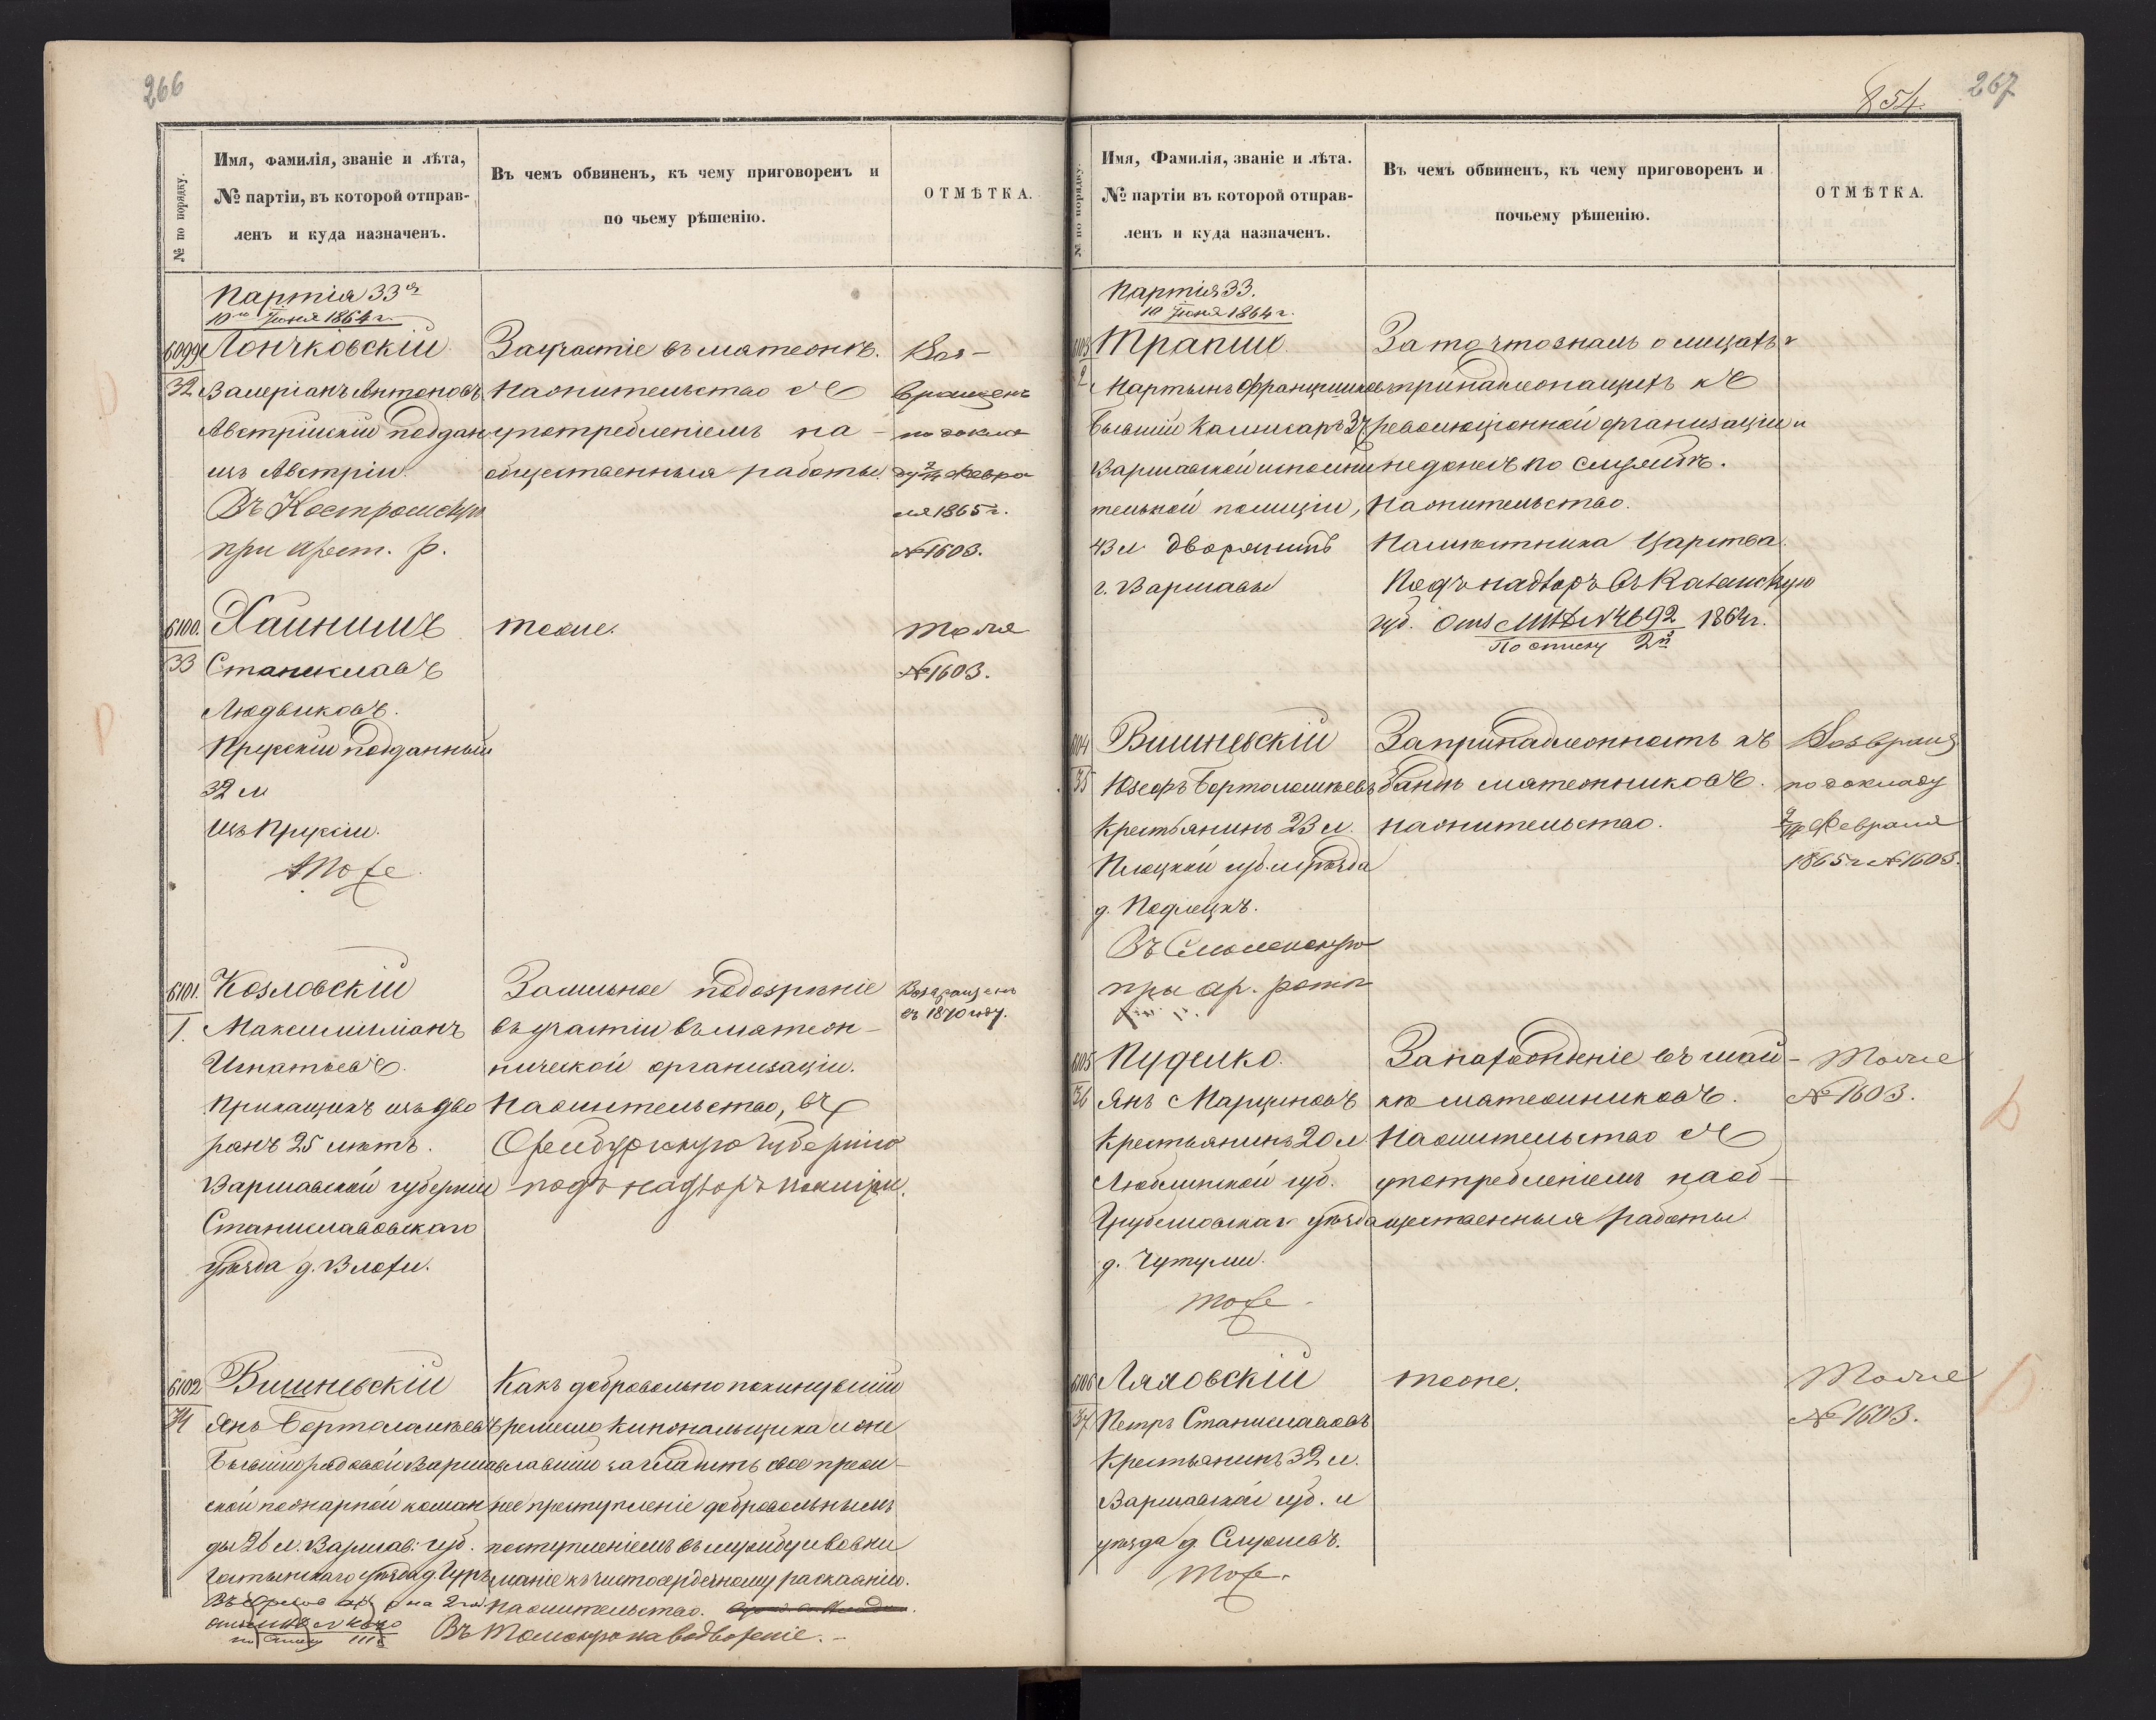 266
№ по порядку.
Имя, фамилія, званіе и лѣта,
№ партіи, въ которой отправ-
ленъ и куда назначенъ.
Въ чемъ обвиненъ, къ чему приговоренъ и
по чьему рѣшенію.
ОТМѢТКА.
Партія 33я
10го Іюня 1864 г.
6099
32
Лончковскій
Валеріанъ Антоновъ
Австрійскій поддан
изъ Австріи
Въ Костромскую
при Арест. р.
За участіе въ мятежѣ.
На жительство съ
употребленіемъ на
общественныя работы.
Воз-
вращенъ
по докла
ду 2/14 Февра
ля 1865 г.
№ 1603.
6100.
33
Хайнишъ
Станиславъ
Людвиковъ.
Прусскій подданный
32 л
изъ Пруссіи.
Тоже
тоже.
тоже
№ 1603.
6101.
1.
Козловскій
Максимиліанъ
Игнатьевъ.
Прикащикъ изъ дво
рянъ 25 лѣтъ.
Варшавской губерніи
Станиславовскаго
уѣзда д.
За сильное подозрѣніе
въ участіи въ мятеж-
нической организаціи.
На жительство, въ
Оренбургскую губернію
подъ надзоръ полиціи.
Возвращенъ
въ 1870 году.
6102
34
Вишневскій
Янъ Бортоломѣевъ
Бывшій рядовой Варшав
ской пожарной коман
ды 26 л. Варшав: губ.
Гостынскаго уѣзда д.
на 2 год
Какъ добровольно покинувшій
ремесло кинжальщика и же
лавшій загладить свое преж-
нее преступленіе добровольнымъ
поступленіемъ въ службу и вовни
маніе къ чистосердечному раскаянію.
На жительство.
Въ Томскую на водвореніе.
854.
267
№ по порядку.
Имя, Фамилія, званіе и лѣта.
№ партіи въ которой отправ-
ленъ и куда назначенъ.
Въ чемъ обвиненъ, къ чему приговоренъ и
почьему рѣшенію.
ОТМѢТКА.
Партія 33.
10 Іюня 1864 г.
6103
2
Трапшо.
Мартынъ Францишковъ
бывшій Комисаръ
Варшавской исполни
тельной полиціи,
43 л. дворянинъ
г. Варшавы
За то что зналъ о лицахъ
принадлежащихъ къ
революціонной организаціи и
не донесъ по службѣ.
На жительство.
Намѣстника Царства.
Подъ надзоръ въ Казанскую
губ. Отн МВД № 4692 1864 г.
По списку 2й
6104
35
Вишневскій
Юзефъ Бортоломѣевъ
Крестьянинъ 23 л.
Плоцкой губ. и уѣзда
д.
Въ Смоленскую
при ар. ротѣ
За принадлежность къ
бандѣ мятежниковъ.
на жительство.
Возвращ
по докладу
2/14 Февраля
1865 г № 1603.
6105
36
Пуделко.
Янъ Марциновъ
Крестьянинъ 20 л
Люблинской губ.
Грубешовскаг уѣзда
д.
тоже.
За нахожденіе въ шай-
кѣ мятежниковъ.
На жительство съ
употребленіемъ на об-
щественныя работы.
Тоже
№ 1603.
6106
37
Ляховскій
Петръ Станиславовъ
Крестьянинъ 32 л.
Варшавской губ. и
уѣзда д. Служевъ.
тоже.
тоже.
Тоже
№ 1603.